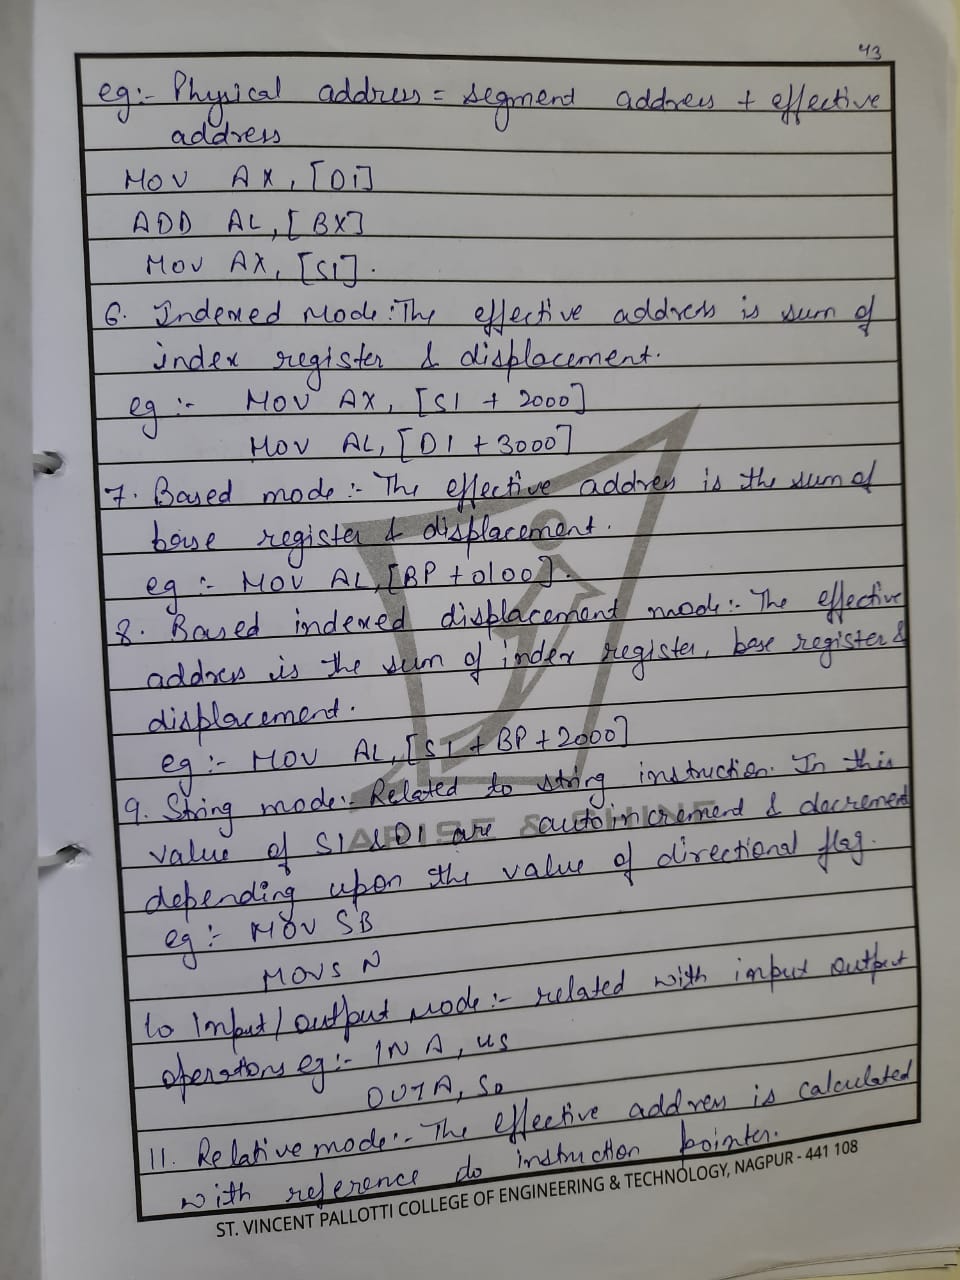 43
eg:- Physical address = segment address + effective
address
MOV AX, [DI]
ADD AL, [BX]
MOV AX, [SI].
6. Indexed Mode: The effective address is sum of
index register & displacement.
eg :- MOV AX, [SI + 2000]
MOV AL, [DI + 3000]
7. Based mode :- The effective address is the sum of
base register & displacement.
eg :- MOV AL, [BP + 0100].
8. Based indexed displacement mode:- The effective
address is the sum of index register, base register &
displacement.
eg :- MOV AL, [SI + BP + 2000]
9. String mode:- Related to string instruction. In this
ARISE & SHINE
value of SI & DI are autoincrement & decrement
depending upon the value of directional flag.
eg :- MOV SB
MOVS N
10 Input/output Mode :- related with input output
operators eg :- IN A, 45
OUT A, 50
11. Relative mode:- The effective address is calculated
with reference do instruction pointer.
ST. VINCENT PALLOTTI COLLEGE OF ENGINEERING & TECHNOLOGY, NAGPUR - 441 108